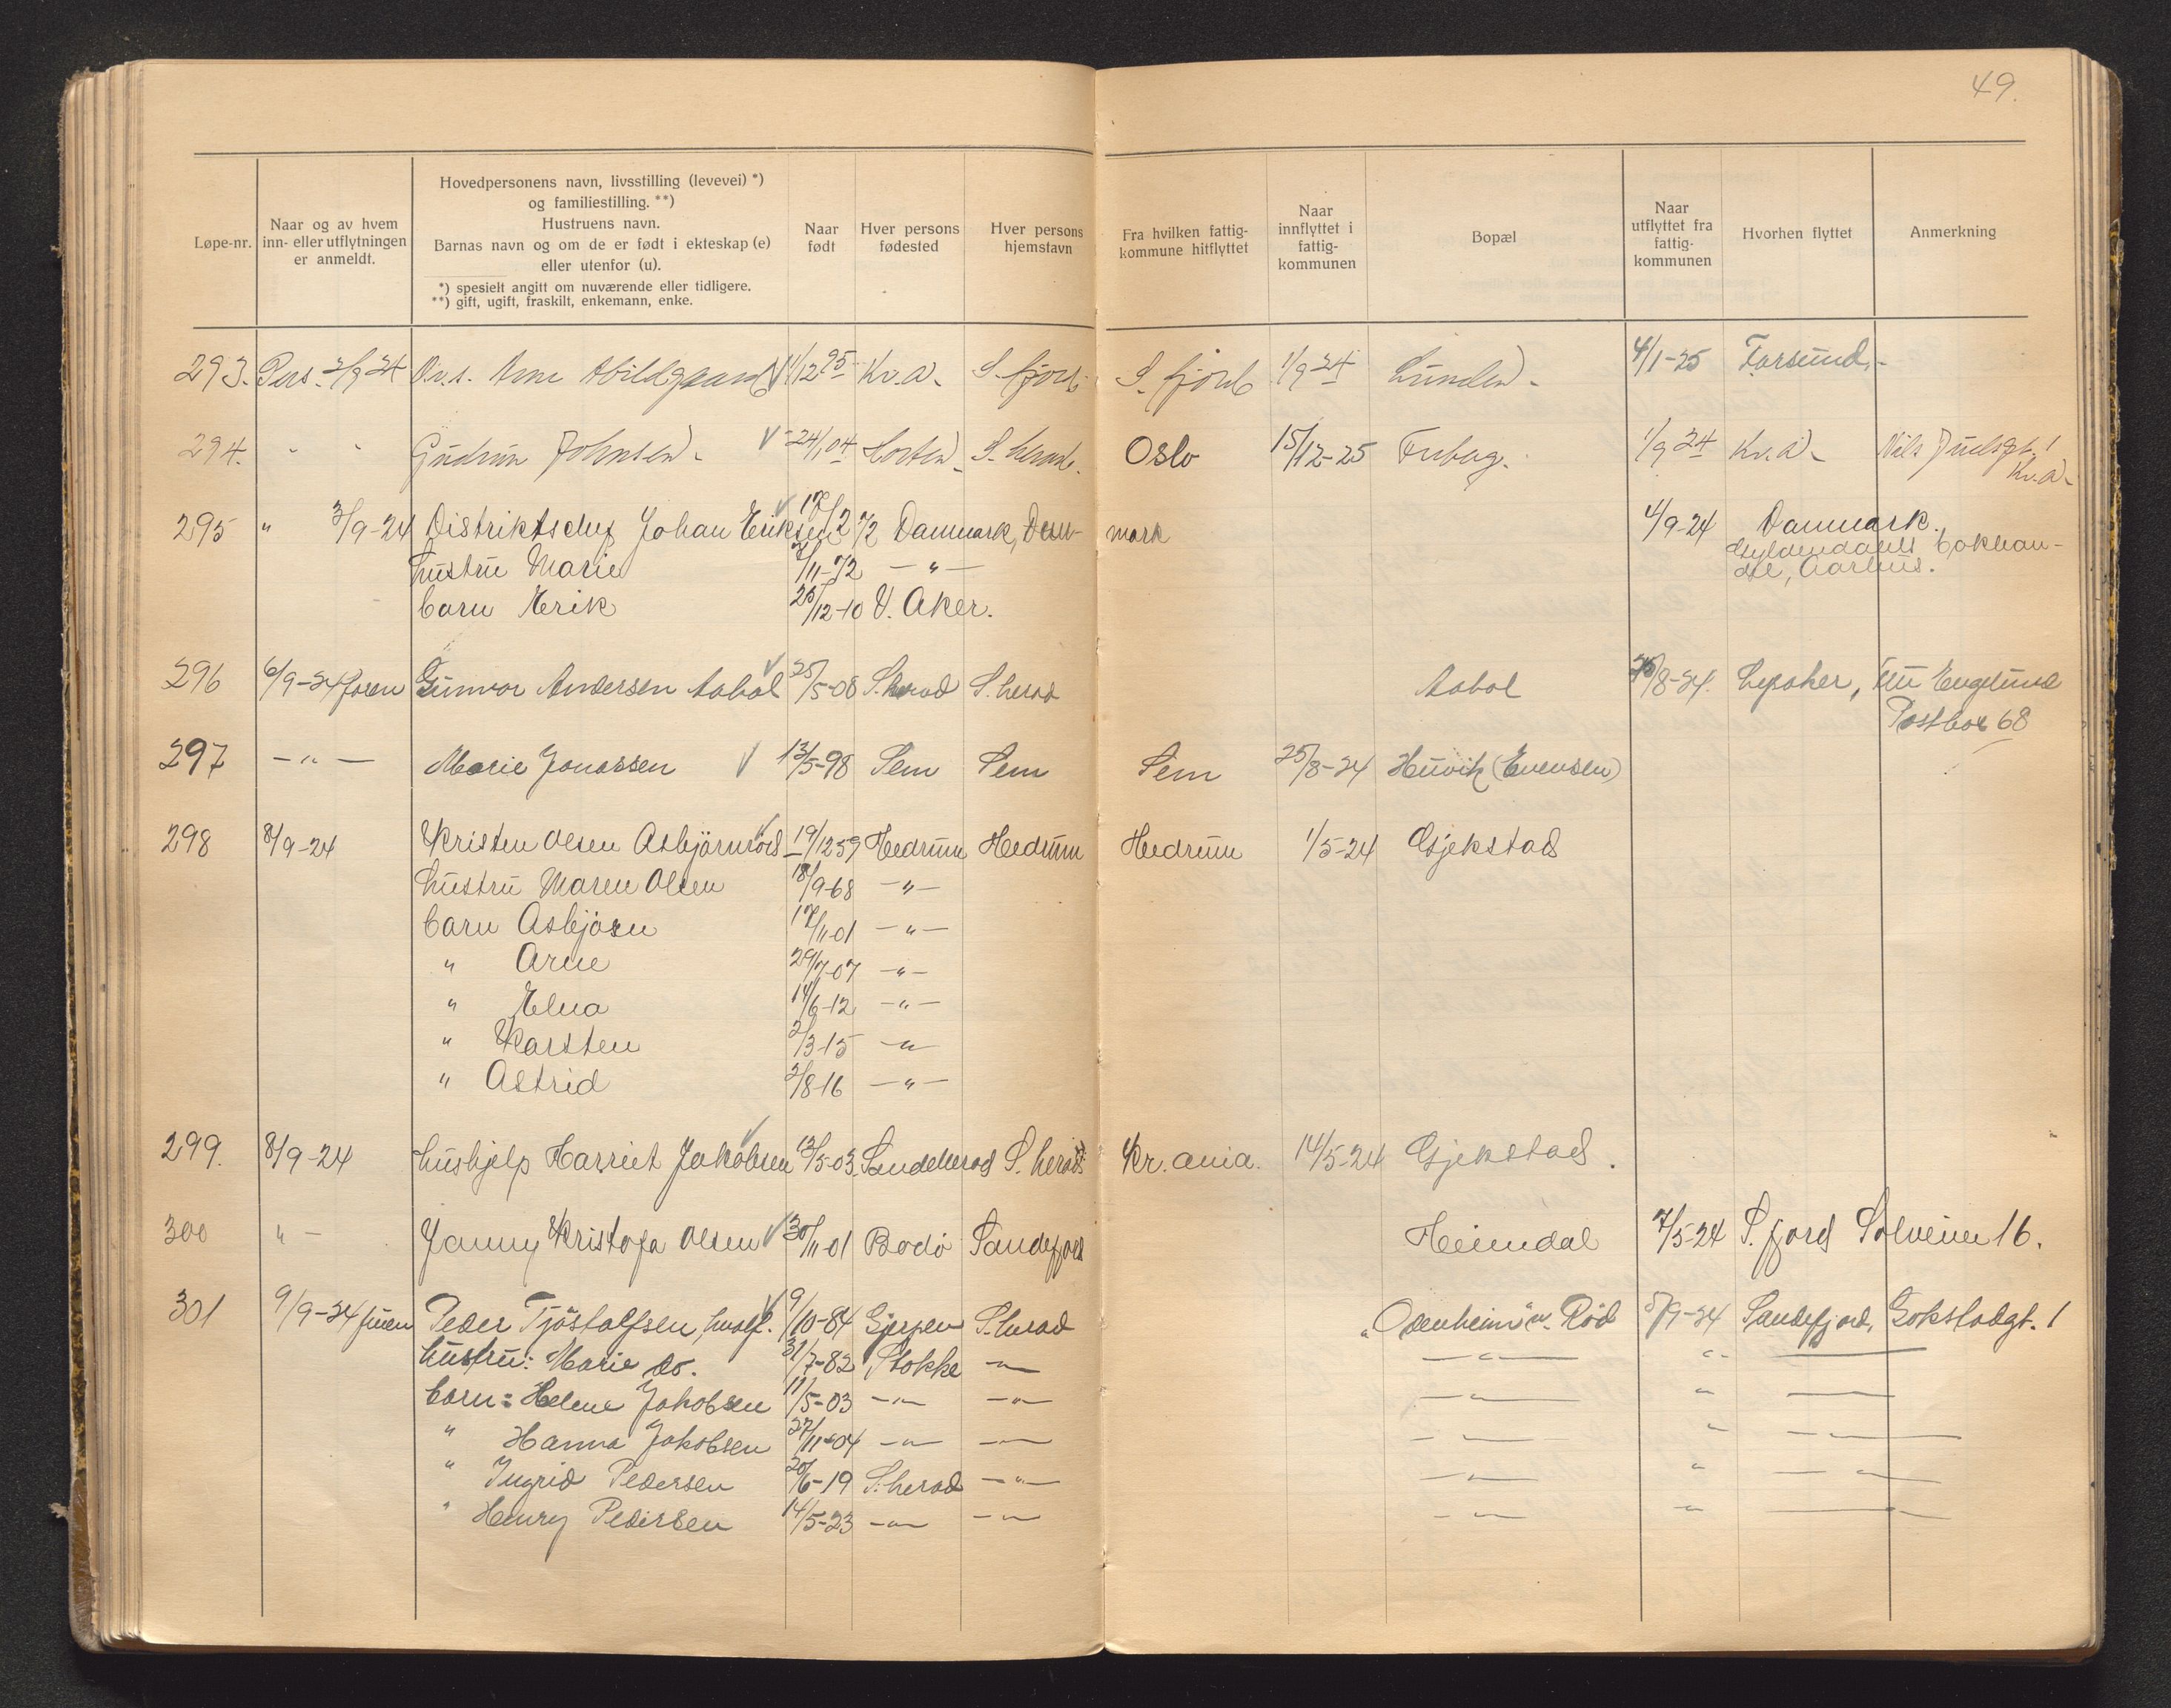 49.
Løpe-nr.
Naar og av hvem
inn- eller utflytningen
er anmeldt.
Hovedpersonens navn, livsstilling (levevei) *)
og familiestilling. **)
Hustruens navn.
Barnas navn og om de er født i ekteskap (e)
eller utenfor (u).
*) spesielt angitt om nuværende eller tidligere.
**) gift, ugift, fraskilt, enkemann, enke.
Naar
født
Hver persons
fødested
Hver persons
hjemstavn
Fra hvilken fattig-
kommune hitflyttet
Naar
innflyttet i
fattig-
kommunen
Bopæl
Naar
utflyttet fra
fattig-
kommunen
Hvorhen flyttet
Anmerkning
293. Pers. 2/9 24 Arne Abildgaard 11/12 95 Kr.a. S. fjord. S. fjord 1/9 24 Lunden. 4/1-25 Farsund.
294. " " Gudrun Johnsen. 24/1 04 Horten. S. herad. Oslo 15/12-25 Furbag. 1/9 24 Kr.a. Nils Juelsgt. 1
Kr.a.
295 " 3/9-24 Distriktschef Johan Eriksen 17/2 72 Danmark, Dan- mark 4/9-24 Danmark.
Gyldendahls bokhan-
del, Aarhus.
hustru Marie 7/11-72 — " —
barn Erik 25/12-10 V. Aker.
296 6/9-24 Gunvor Andersen Aabol 25/5-08 S. herad S. herad Aabol 25/8-24. Lysaker, Fru Engelund
Postbox 68
297 — " — Marie Jonassen 13/5-98 Sem Sem Sem 25/8-24 Huvik (Evensen)
298 8/9-24 Kristen Olsen Asbjörnröd 19/12 59 Hedrum Hedrum Hedrum 1/5-24 Gjekstad
hustru Maren Olsen 18/9-68 — " —
barn Asbjörn 17/11-01 — " —
" Arne 29/7-07 — " —
" Elna 14/6-12 — " —
" Karsten 2/3-15 — " —
" Astrid 2/8-16 — " —
299. 8/9-24 hushjelp Harriet Jakobsen 13/5-03 Sandeherad S. herad Kr.ania. 14/5-24 Gjekstad.
300 " — Janny Kristofa Olsen 30/11-01 Bodö Sandefjord Heimdal 7/5-24 S. fjord Solveien 16.
301 9/9-24 Peder Tjöstolfsen, hvalf. 9/10-84 Gjerpen S. herad "Osenheim" v. Röd 5/9-24 Sandefjord, Gokstadgt. 1
hustru: Marie do. 31/7-82 Stokke — " — — " — " — " —
barn: Helene Jakobsen 11/5-03 — " — — " — — " — " — " —
" Hanna Jakobsen 27/11-04 — " — — " — — " — " — " —
" Ingrid Pedersen 20/6-19 S. herad — " — — " — " — " —
" Henry Pedersen 14/5-23 — " — — " — — " — " — " —